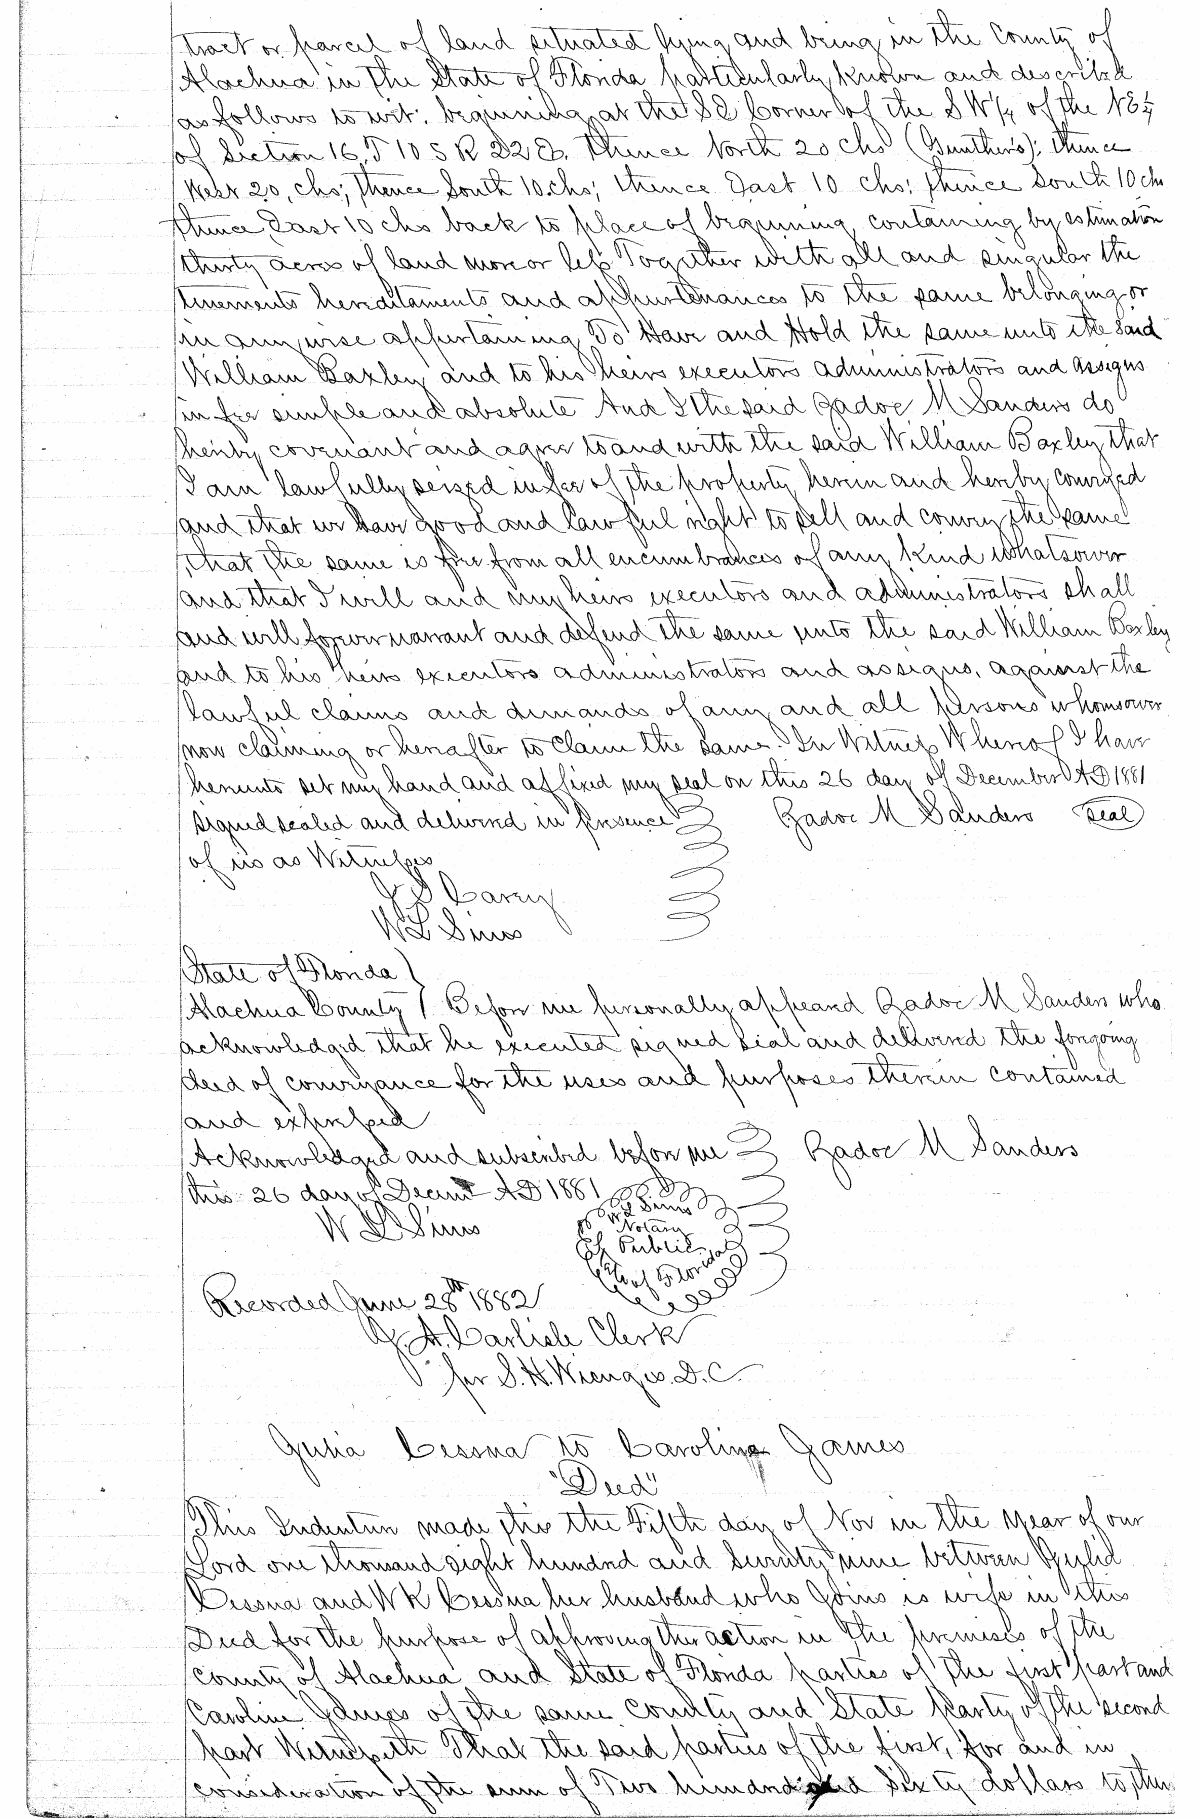 tract or parcel of land situated lying and being in the County of
Alachua in the State of Florida particularly known and described
as follows to wit: beginning at the SE Corner of the S W 1/4 of the NE 1/4
of Section 16, T 10 S R 22 E. Thence North 20 chs (Gunther's); thence
West 20, chs; thence South 10.chs; thence East 10 chs; thence South 10 chs
thence East 10 chs back to place of beginning, containing by estimation
thirty acres of land more or less Together with all and singular the
tenements hereditaments and appurtenances to the same belonging or
in any wise appertaining To Have and Hold the same unto the Said
William Baxley and to his heirs executors administrators and assigns
in fee simple and absolute And I the said Zadoc M Sanders do
hereby covenant and agree to and with the said William Baxley that
I am lawfully seized in fee of the property herein and hereby conveyed
and that we have good and lawful right to sell and convey the same
, that the same is free from all encumbrances of any kind whatsoever
and that I will and my heirs executors and administrators shall
and will forever warrant and defend the same unto the said William Baxley
and to his heirs executors administrators and assigns, against the
lawful claims and demands of any and all persons whomsoever
now claiming or hereafter to claim the same. In Witness Whereof I have
hereunto set my hand and affixed my seal on this 26 day of December AD 1881
Signed sealed and delivered in presence Zadoc M Sanders Seal
of us as Witnesses
J S Carey
W L Sims
State of Florida
Alachua County Before me personally appeared Zadoc M Sanders who
acknowledged that he executed signed seal and delivered the forgoing
deed of conveyance for the uses and purposes therein contained
and expressed
Acknowledged and subscribed before me Zadoc M Sanders
this 26 day of AD 1881
W L Sims
W L Sims
Notary
Public
of Florida
Recorded June 28th 1882
J. A. Carlisle Clerk
per S. H. Wienges. D. C.
Julia Cessna to Caroline James
"Deed"
This Indenture made this the Fifth day of Nov in the year of our
Lord one thousand eight hundred and Seventy nine between Julia
Cessna and W K Cessna her husband who joins is wife in this
Deed for the purpose of approving ther action in the premises of the
County of Alachua and State of Florida parties of the first part and
Caroline James of the same County and State party of the second
part Witnesseth That the said parties of the first, for and in
consideration of the sum of Two hundred and Sixty dollars to them